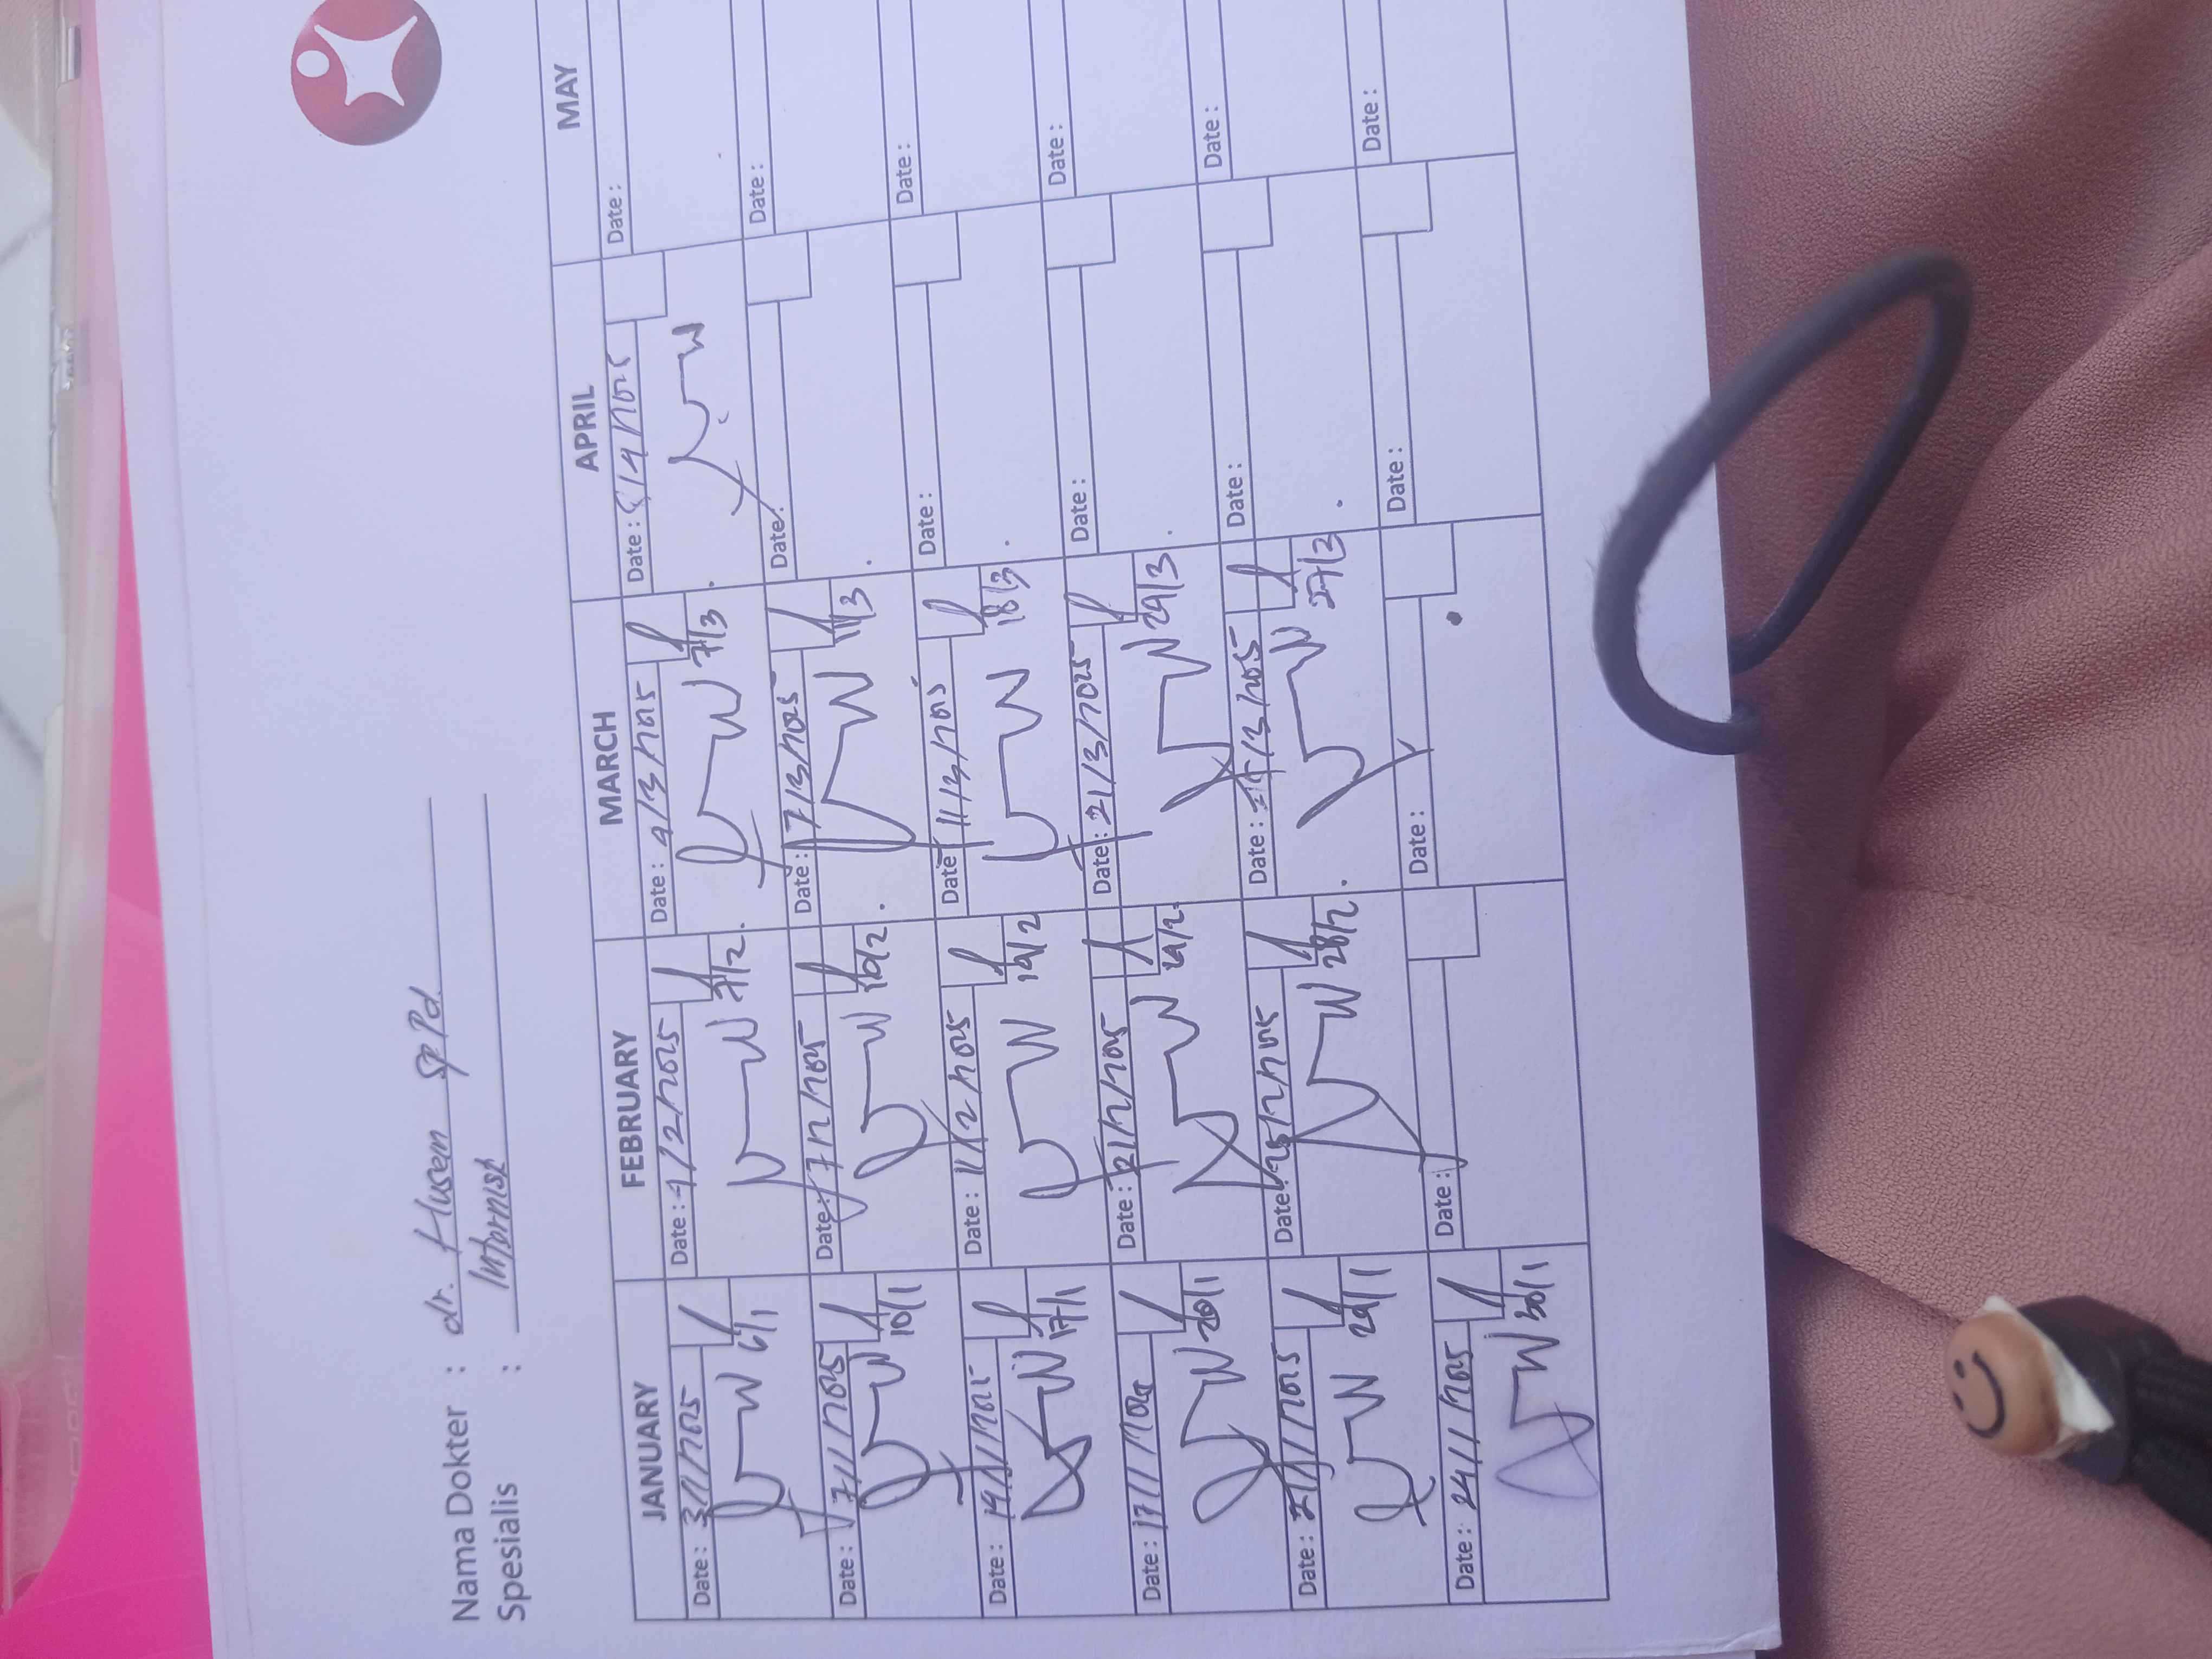 Nama Dokter : dr. Husen SpPd.
Spesialis : Internist
JANUARY FEBRUARY MARCH APRIL MAY
Date : 3/1/2025 Date : 4/2/2025 Date : 4/3/2025 Date : 8/4/2025 Date :
6/1 7/2. 7/3
Date : 7/1/2025 Date : 7/2/2025 Date : 7/3/2025 Date : Date :
10/1 10/2 11/3
Date : 14/1/2025 Date : 11/2/2025 Date 11/3/2025 Date : Date :
17/1 19/2 18/3
Date : 17/1/2025 Date : 21/2/2025 Date : 21/3/2025 Date : Date :
20/1 24/2 24/3
Date : 21/1/2025 Date : 25/2/2025 Date : 25/3/2025 Date : Date :
24/1 28/2 27/3
Date : 24/1/2025 Date : Date : Date : Date :
30/1